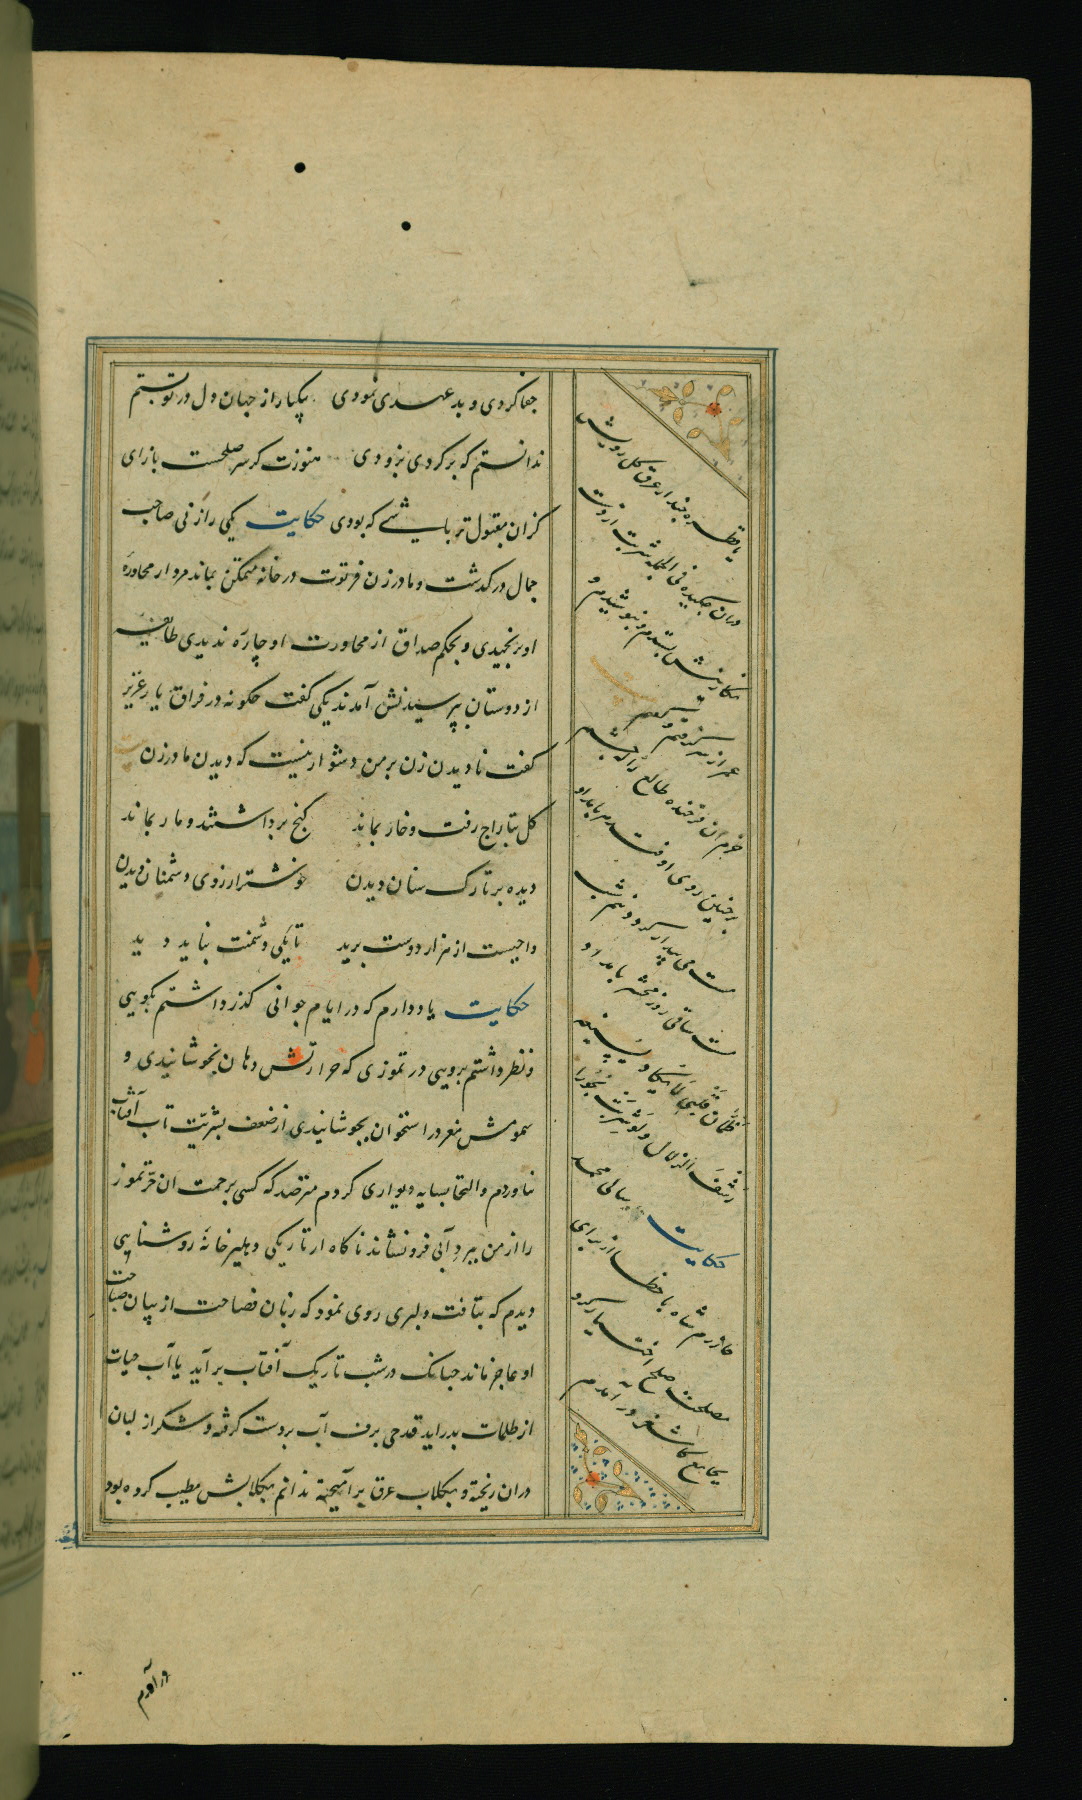 جفا کردی و بد عهدی نمودی یکبار از جهان دل در تو بستم
ندانستم که برگردی بزودی هنوزت گر سر صلحست بازای
کزان مقبولتر باشی که بودی حکایت یکی را زنی صاحب
جمال درگذشت و مادر زن فرتوت در خانه متمکن بماند مرد از محاوره
او برنجیدی و بحکم صداق از محاورت او چاره ندیدی طایفه
از دوستان بپرسیدنش آمدند یکی گفت چگونه در فراق یار عزیز
گفت نادیدن زن بر من دشوار نیست که دیدن مادر زن
گل بتاراج رفت و خار بماند گنج برداشتند و مار بماند
دیده بر تارک سنان دیدن خوشتر از روی دشمنان دیدن
واجبست از هزار دوست برید تا یکی دشمنت نباید دید
حکایت یاد دارم که در ایام جوانی گذر داشتم بکویی
و نظر داشتم برویی در تموزی که حرارتش دهان بخوشانیدی و
سمومش مغز در استخوان بجوشانیدی از ضعف بشریت تاب آفتاب
نیاوردم و التجا بسایه دیواری کردم مترصد که کسی برحمت ان حر تموز
را از من ببرد آبی فرونشاند ناکاه از تاریکی دهلیز خانه روشنایی
دیدم که بتافت دلبری روی نمود که زبان فصاحت از بیان صباحت
او عاجز ماند چنانک در شب تاریک آفتاب برآید یا آب حیات
از ظلمات بدراید قدحی برف آب بر دست گرفته و شکر از لبان
دران ریخته و بگلاب عرق برآمیخته ندانم بگلابش مطیب کرده بود
یا قطره چند از عرق گل رویش
دران چکیده فی الجمله شربت از دست
نگارینش بستدم و بنوشیدم و
عمر از سر گرفتم و
خرم ان فرخنده طالع را که چشم
بر چنین روی اوفتد هر بامداد
مست می بیدار گردد نیم شب
مست ساقی روز محشر بامداد
ظمان قلبی لا یکاد یسیغه
رشف الزلال ولو شربت بحورا
حکایت سالی محمد
خوارزم شاه با خطا از برای
مصلحتی صلح اختیار کرد
بجامع کاشغر در امدم
در آمدم